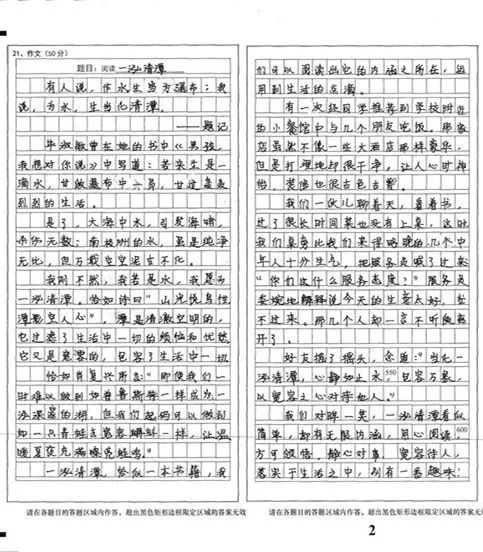 21、作文(50分)
题目：阅读一泓清潭
有人说，作水生当为瀑布；我
说，为水，生当化清潭。
——题记
毕淑敏曾在她的书中《男孩，
我想对你说》中写道：若来生是一
滴水，甘做瀑布中一员，甘过轰轰
别别的生活。
是了，大海中水，引发海啸，
杀伤无数；南极洲的水，虽是纯净
无比，但万载空空泥古不化。
我则不然，我若是水，我愿为
一泓清潭。恰如诗曰"山光悦鸟性
潭影空人心"，潭是清澈空明的，
它过滤了生活中一切的烦恼和忧愁
它又是宽容的，包容了生活中一切
恰如肖复兴所言："即使我们一
时难以做到如普鲁斯特一样成为一
泓深蓝的湖，但我们起码可以做到
如一只青蛙去宽容蝌蚪一样，让温
暖夏夜充满嘹亮蛙鸣。"
一泓清潭，恰似一本书籍，我
们可以阅读出它的内涵之所在，运
用到生活的点滴。
有一次经同学推荐到学校附近
的小餐馆中与几个朋友吃饭。那家
店虽然不像一些大酒店那样豪华，
但是打理地却很干净，让人心旷神
怡，装修也很古色古香。
我们一伙儿聊着天，看着书，
过了很长时间菜也没有上桌，这时
我们桌旁比我们来得略晚的几个中
年人十分生气，把服务员喊了过来
"你们这什么服务态度？"服务员
委婉地解释说今天的生意太好，忙
不过来。那几个人却一言不听便离
开了。
好友摇了摇头，余道："当化一
泓清潭，心静如止水，包容万象，
550
以宽容之心对待他人。"
我们对眸一笑，一泓清潭看似
简单，却有无限内涵，用心阅读，
600
方可领悟。静心对事，宽容待人，
落实于生活之中，别有一番趣味！
请在各题目的答题区域内作答，超出黑色矩形边框限定区域的答案无效
请在各题目的答题区域内作答，超出黑色矩形边框限定区域的答案无
2